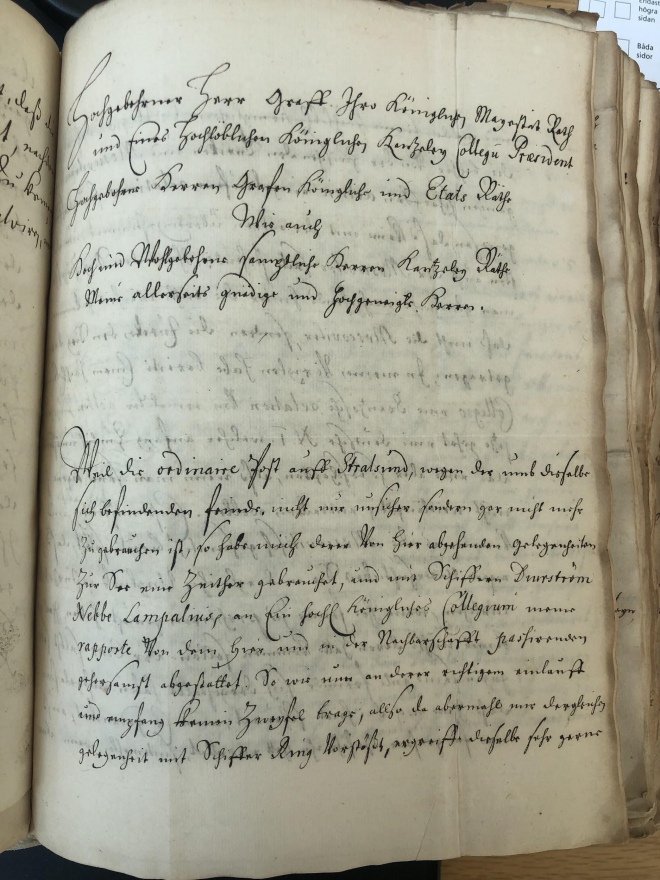 Hochgebohrner Herr Graff Ihro Königlichen Mayestät Rath
und Eines Hochlöblichen Königlichen Cantzeley Collegii Præsident
Hochgebohrne Herren Grafen Königliche und Etats Räthe
Wie auch
Hoch und Wohlgebohrne sämptliche Herren Cantzeley Räthe
Meine allerseits gnädige und Hochgeneigte Herren.
Weil die ordinaire Post auff Stralsund, wegen der umb dieselbe
sich befindenden feinde, nicht nur unsicher sondern gar nicht mehr
zu gebrauchen ist, so habe mich derer von hier abgehenden gelegenheiten
zur See eine Zeither gebrauchet, und mit Schiffern Diurström
Nebbe Lampalius, an Ein hochl. Königliches Collegium meine
rapporte von dem hier und in der Nachbarschafft passirenden
gehorsamst abgestattet. So wie nun an derer richtigem einlauff
und empfang keinen Zweyfel trage, allso da abermahl mir dergleichen
gelegenheit mit Schiffer Ring vorstößt, ergreiffe dieselbe sehr gerne
Endast
högra
sidan
Båda
sidor